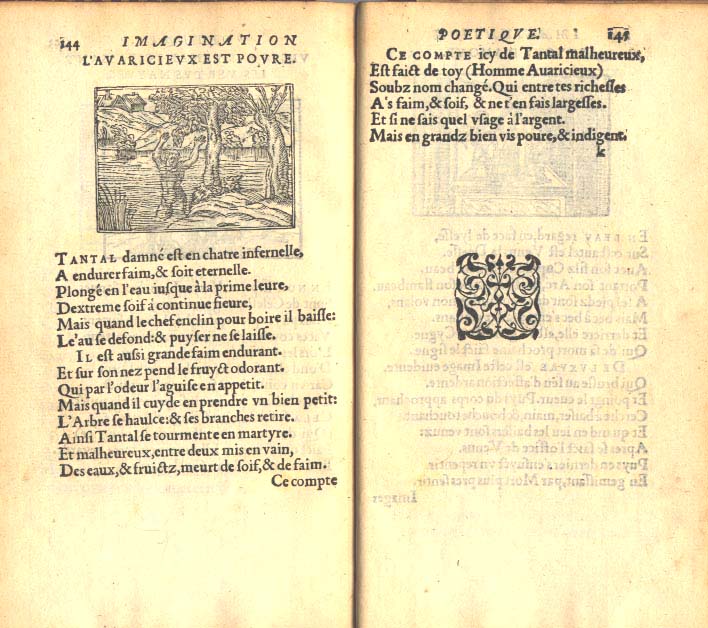 144 IMAGINATION
L'AVARICIEVX EST POVRE.
TANTAL damné est en chatre infernelle,
A endurer faim, & soif eternelle.
Plongé en l'eau iusque à la prime leure,
Dextreme soif à continue fieure,
Mais quand le chef enclin pour boire il baisse:
Le'au se defond: & puyser ne se laisse.
IL est aussi grande faim endurant.
Et sur son nez pend le fruyct odorant.
Qui par l'odeur l'aguise en appetit.
Mais quand il cuyde en prendre vn bien petit:
L'Arbre se haulce: & ses branches retire.
Ainsi Tantal se tourmente en martyre.
Et malheureux, entre deux mis en vain,
Des eaux, & fruictz, meurt de soif, & de faim.
Ce compte
POETIQVE. 145
CE COMPTE icy de Tantal malheureux,
Est faict de toy (Homme Auaricieux)
Soubz nom changé. Qui entre tes richesses
A's faim, & soif, & ne t'en fais largesses.
Et si ne sais quel vsage à l'argent.
Mais en grandz bien vis poure, & indigent.
k